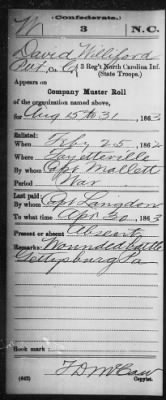 (Confederate.)
W 3 N.C.
David Williford
Pvt, Co. G, 3 Reg't North Carolina Inf.
(State Troops.)
Appears on
Company Muster Roll
of the organization named above,
for Aug 15 to 31, 1863
Enlisted:
When Feby 25, 1862
Where Fayetteville
By whom Capt Mallett
Period War
Last paid:
By whom Capt Langdon
To what time Apr 30, 1863
Present or absent Absent
Remarks: Wounded battle
Gettysburg Pa
Book mark:
(642)
Copyist.